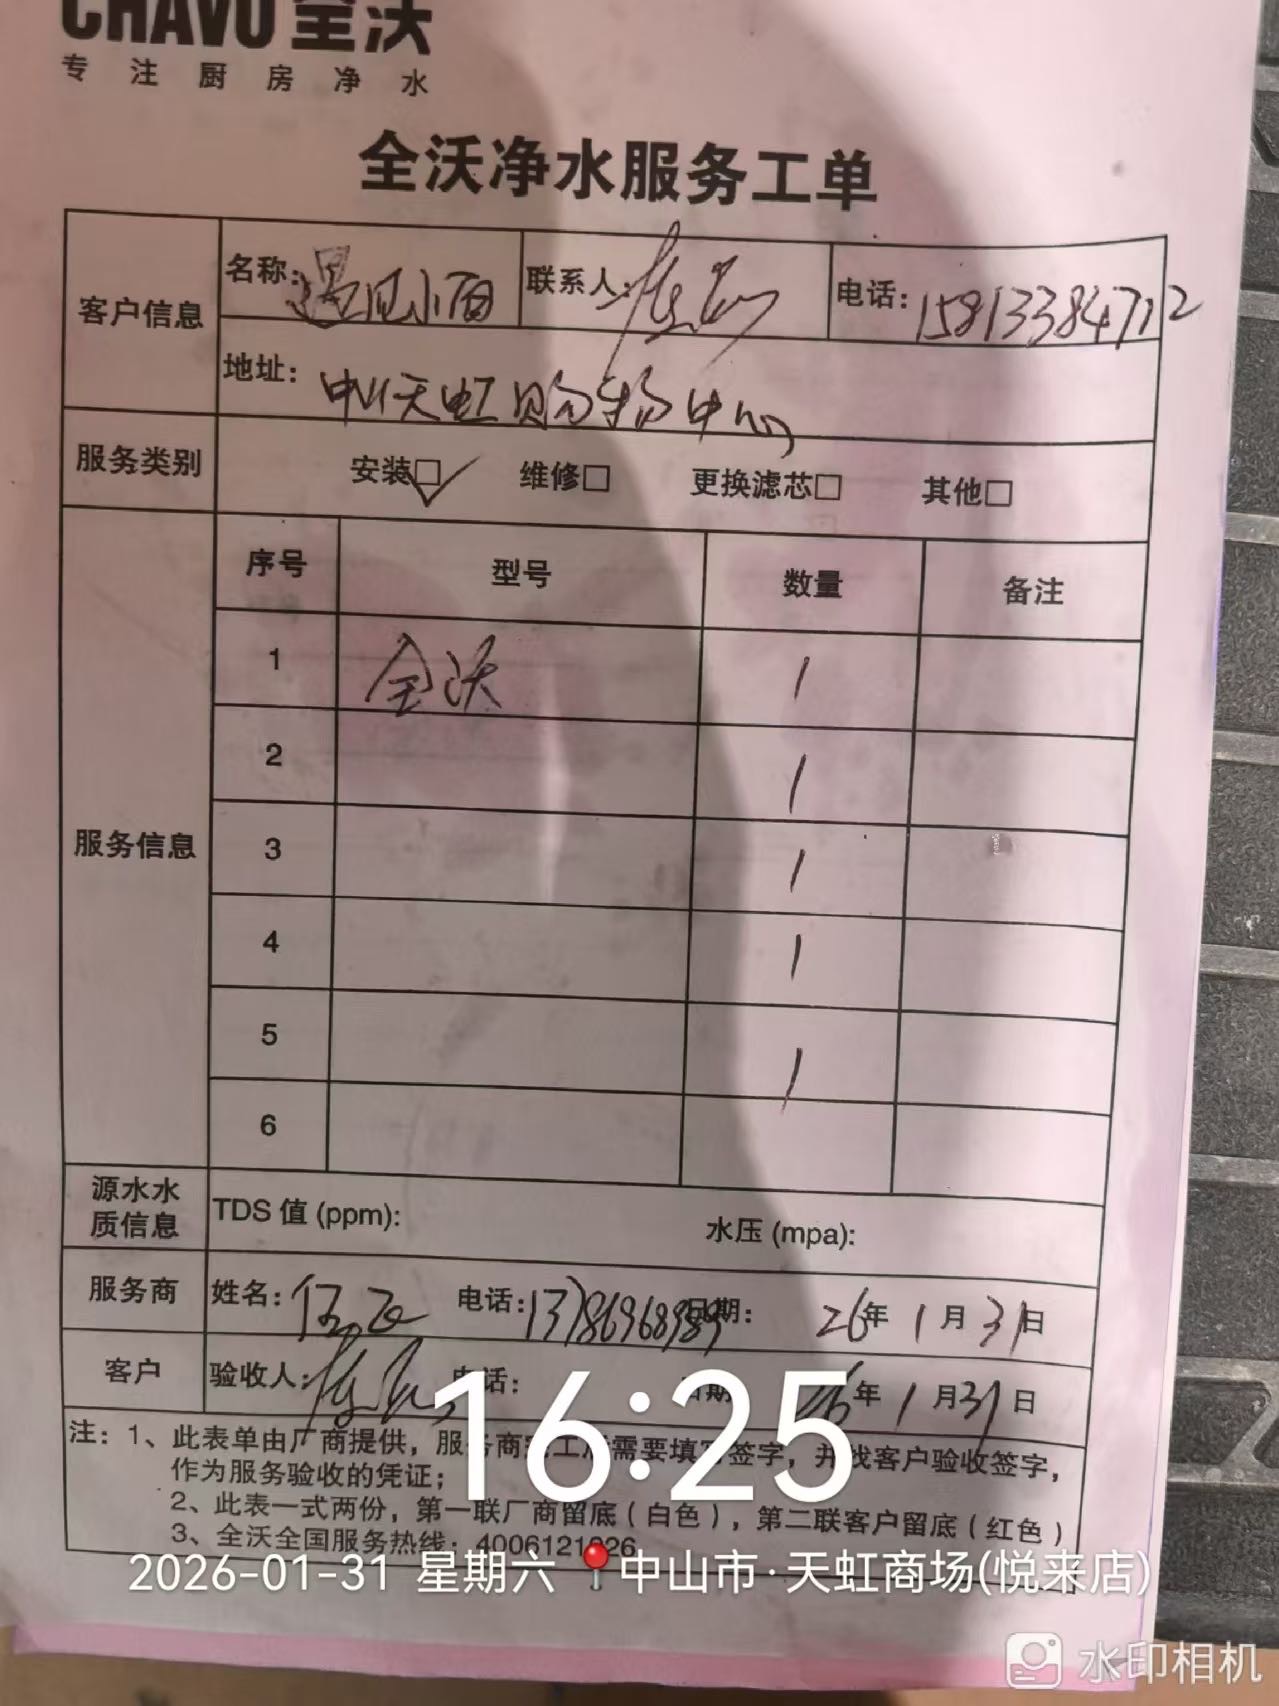 CHAVO 全沃
专注厨房净水
全沃净水服务工单
客户信息 名称: 遇见小面 联系人: 电话: 15813384712
地址: 中山天虹购物中心
服务类别 安装☑ 维修□ 更换滤芯□ 其他□
服务信息 序号 型号 数量 备注
1 全沃 1
2 1
3 1
4 1
5 1
6
源水水质信息 TDS 值 (ppm): 水压 (mpa):
服务商 姓名: 电话: 13786968989 日期: 26年1月31日
客户 验收人: 电话: 日期: 26年1月31日
16:25
注: 1、此表单由厂商提供，服务商完工后需要填写签字，并找客户验收签字，
作为服务验收的凭证；
2、此表一式两份，第一联厂商留底（白色），第二联客户留底（红色）
3、全沃全国服务热线: 4006121026
2026-01-31 星期六 中山市·天虹商场(悦来店)
水印相机